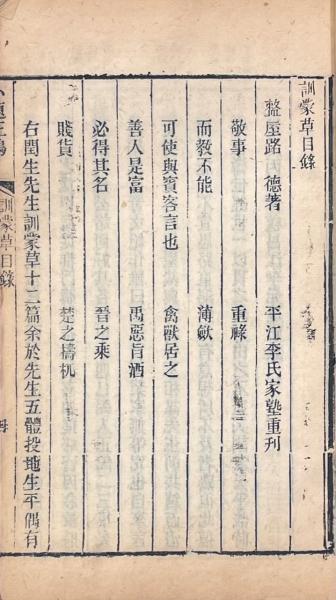 訓蒙草目錄
盩厔路 德著 平江李氏家塾重刊
敬事 重祿
而教不能 薄斂
可使與賓客言也 禽獸居之
善人是富 禹惡旨酒
必得其名 晉之乘
賤貨 楚之檮杌
右閏生先生訓蒙草十二篇余於先生五體投地生平偶有
訓蒙草目錄